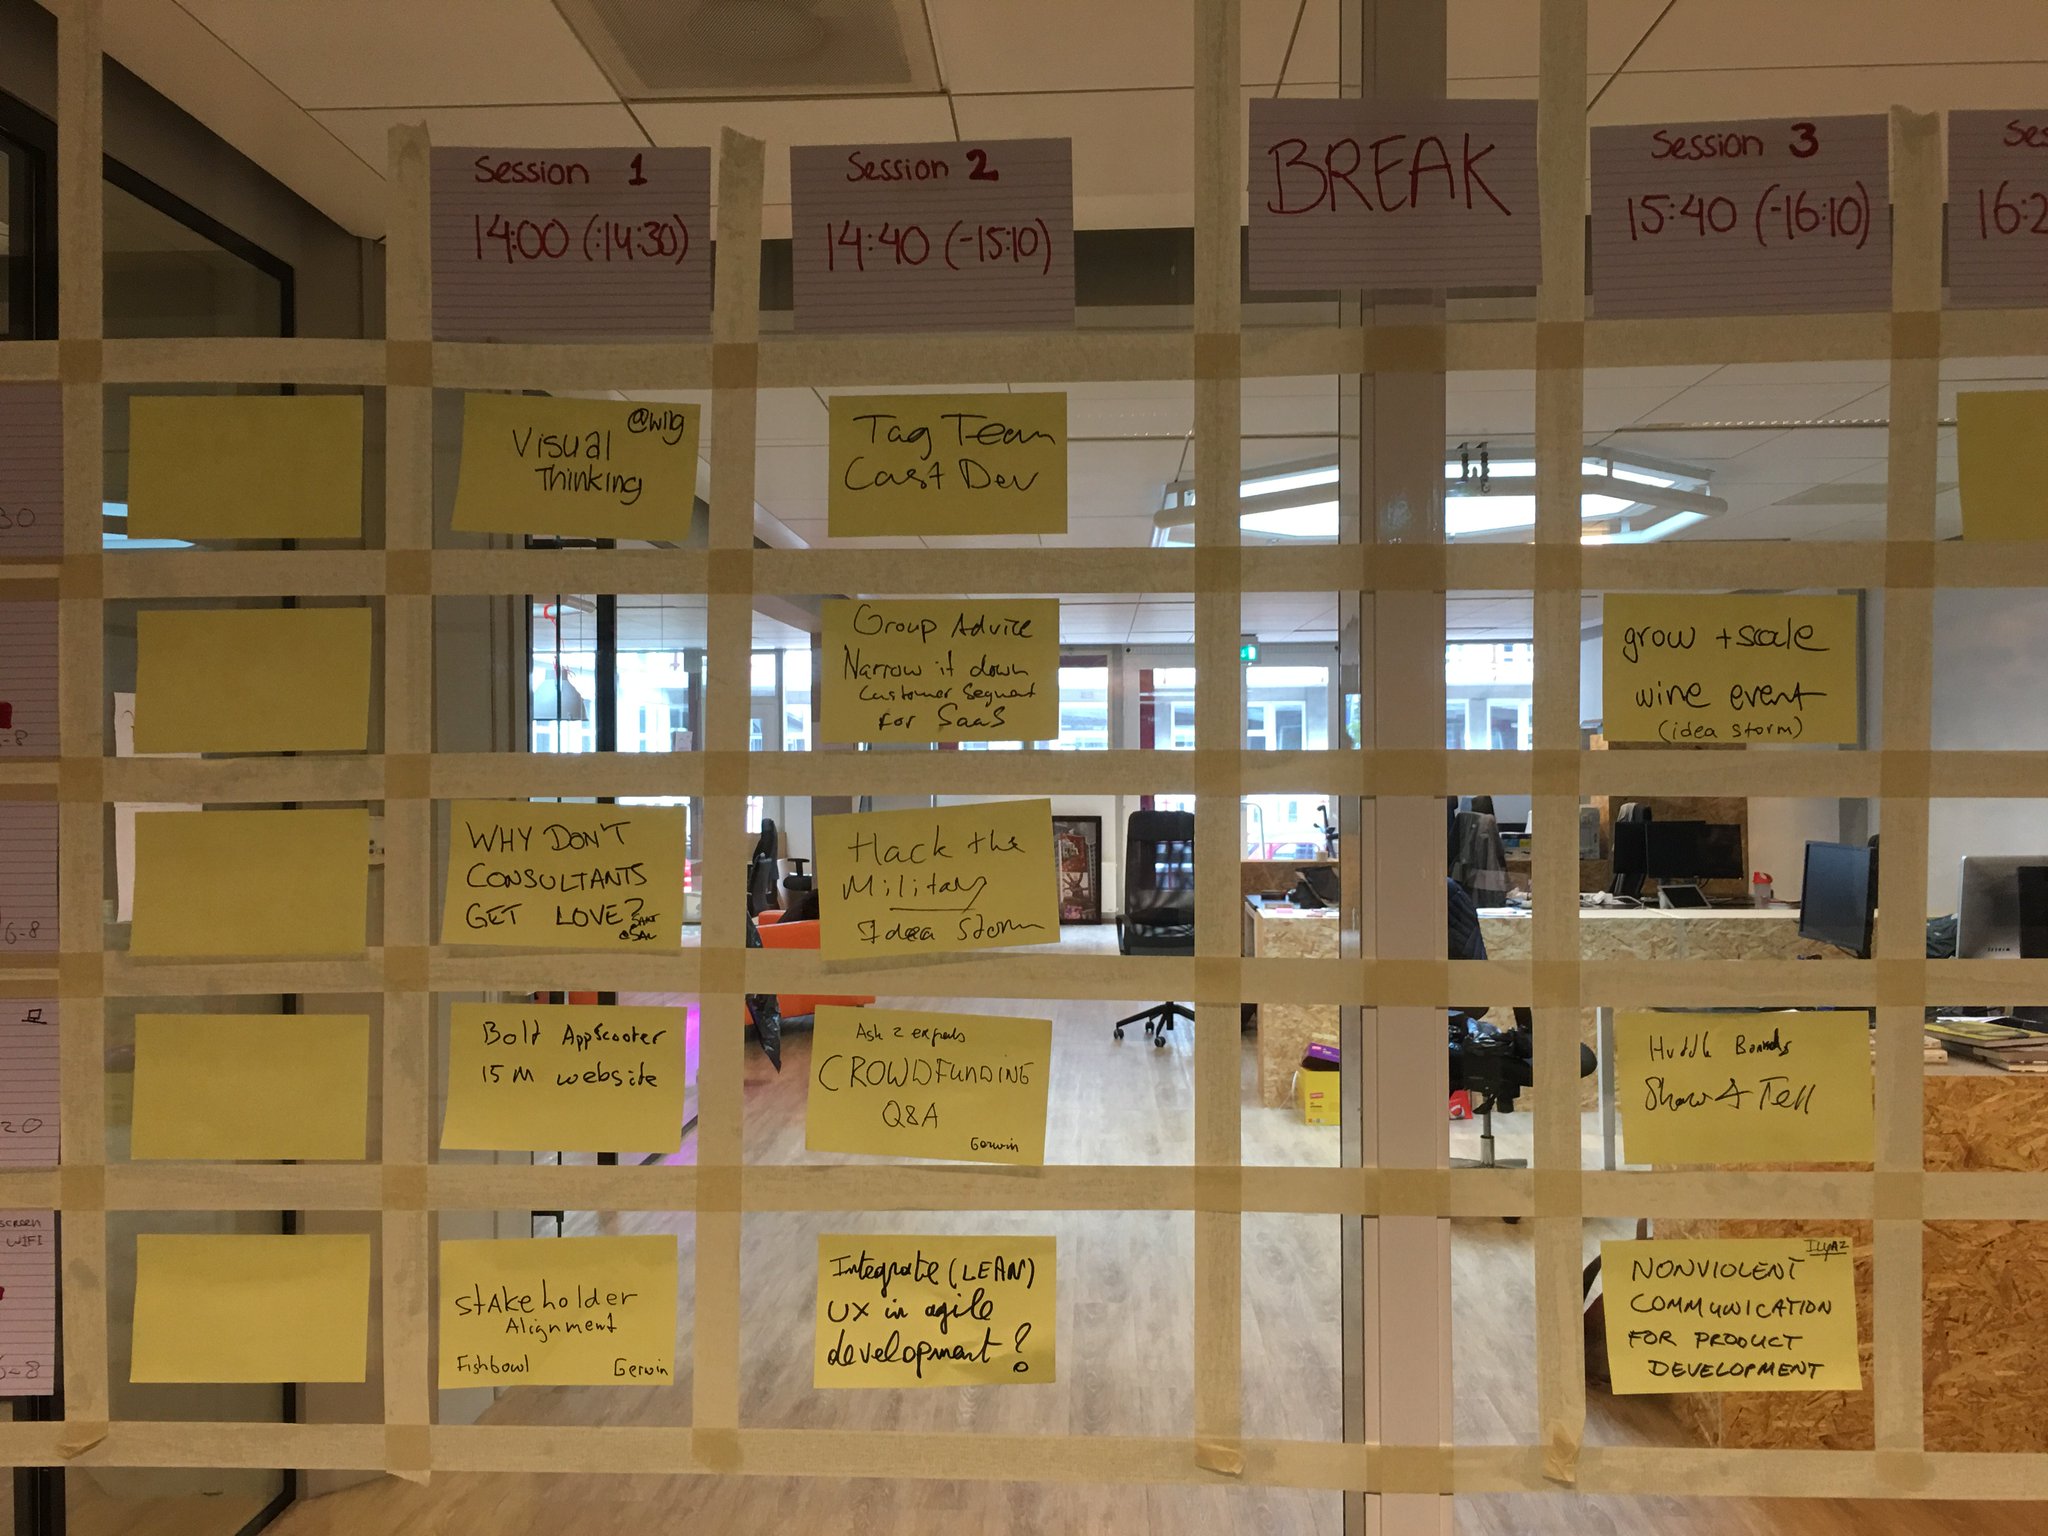 Session 1
14:00 (-14:30)
Session 2
14:40 (-15:10)
BREAK
Session 3
15:40 (-16:10)
16:2
30
@wilg
Visual
Thinking
Tag Team
Cust Dev
-8
Group Advice
Narrow it down
Customer Segment
for SaaS
grow + scale
wine event
(idea storm)
6-8
WHY DON'T
CONSULTANTS
GET LOVE?
Hack the
Military
Idea Storm
20
Bolt AppScooter
15 M website
Ask 2 experts
CROWDFUNDING
Q&A
Gerwin
Huddle Boards
Show & Tell
SCREEN
WIFI
-8
StAkeholder
Alignment
Fishbowl Gerwin
Integrate (LEAN)
UX in agile
development?
ILYAZ
NONVIOLENT
COMMUNICATION
FOR PRODUCT
DEVELOPMENT